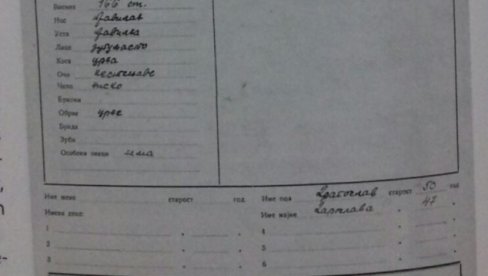 Висина 166 cm.
Нос правилан
Уста правилна
Лице дугуљасто
Коса црна
Очи
Чело
Бркови
Обрве црне
Брада
Зуби
Особени знаци нема
Име жене старост год. Име оца Драгослав старост 50 год
Имена деце: Име мајке 47 "
1 " 4 "
2 " 5 "
3 " 6 "